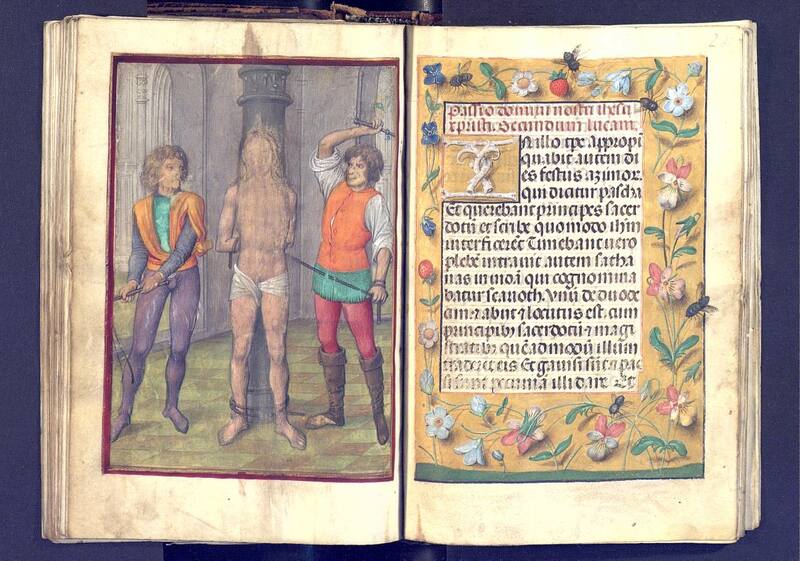 Passio domini nostri ihesu
xpristi. Secundum lucam.
In illo tpe appropi
quabit autem di
es festus azimor.
qui dicitur pascha
Et querebant principes sacer
dotū et scribe quomodo ihm
interficerēt Timebant uero
plebē intravit autem satha
nas in iudā qui cognomina
batur scarioth. Vnū de duode
cim et abiit et locutus est. cum
principibz sacerdotū et magi
stratibz quēadmodū illum
traderet eis Et gauisi sūt et pac
ti sunt pecuniā illi dare. Et